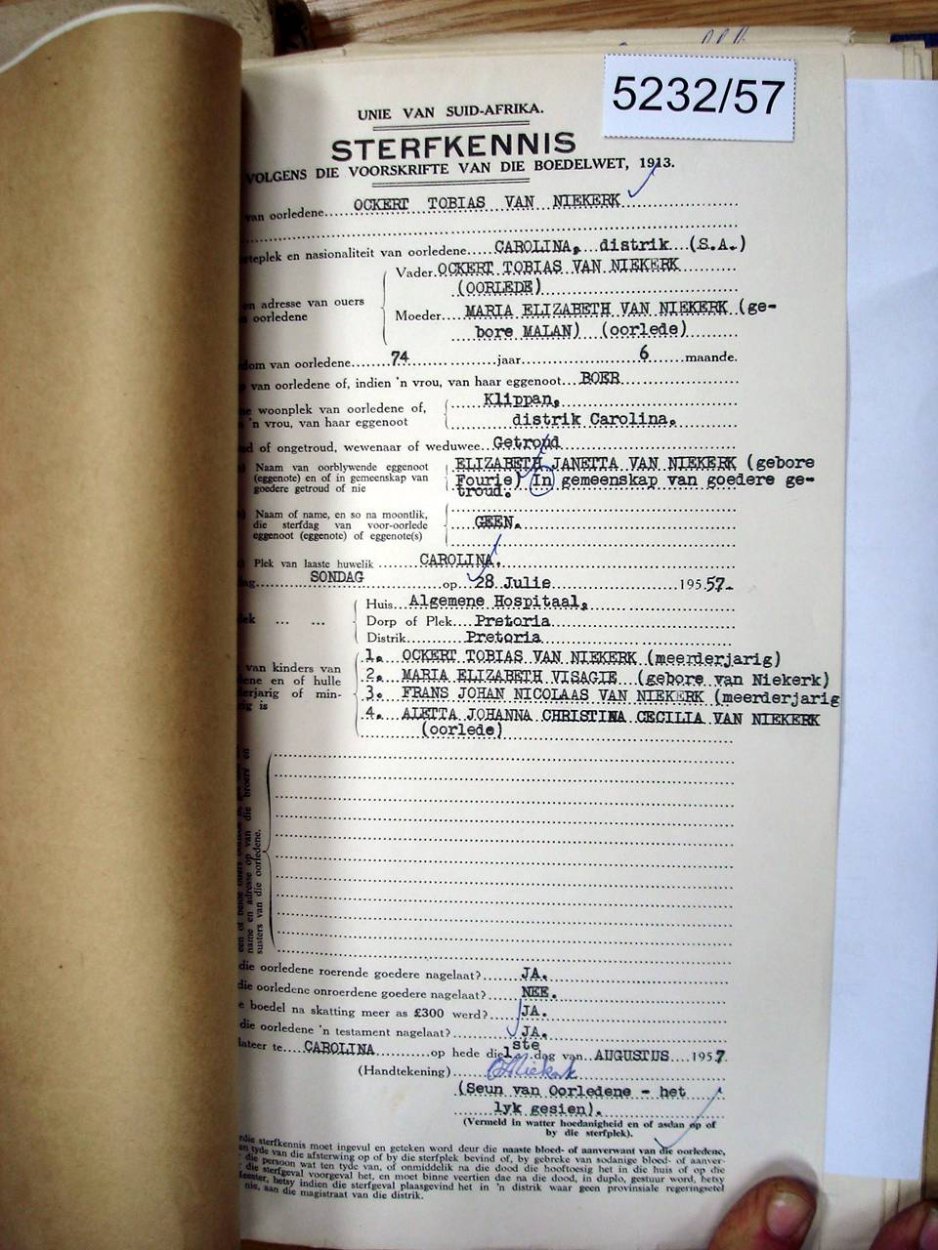 5232/57
UNIE VAN SUID-AFRIKA.
STERFKENNIS
VOLGENS DIE VOORSKRIFTE VAN DIE BOEDELWET, 1913.
van oorledene....OCKERT TOBIAS VAN NIEKERK
teplek en nasionaliteit van oorledene....CAROLINA, distrik (S.A.)
Vader.OCKERT TOBIAS VAN NIEKERK
(OORLEDE)
en adresse van ouers
oorledene
Moeder....MARIA ELIZABETH VAN NIEKERK (ge-
bore MALAN) (oorlede)
dom van oorledene....74....jaar....6....maande.
van oorledene of, indien 'n vrou, van haar eggenoot...BOER
e woonplek van oorledene of,
'n vrou, van haar eggenoot
Klippan,
distrik Carolina.
d of ongetroud, wewenaar of weduwee..Getroud
Naam van oorblywende eggenoot
(eggenote) en of in gemeenskap van
goedere getroud of nie
ELIZABETH JANETTA VAN NIEKERK (gebore
Fourie) In gemeenskap van goedere ge-
troud.
Naam of name, en so na moontlik,
die sterfdag van voor-oorlede
eggenoot (eggenote) of eggenote(s)
GEEN.
Plek van laaste huwelik....CAROLINA.
ng....SONDAG....op..28 Julie....195.57.
Huis...Algemene Hospitaal,
lek ... ... Dorp of Plek....Pretoria
Distrik....Pretoria
van kinders van
ene en of hulle
erjarig of min-
ig is
1. OCKERT TOBIAS VAN NIEKERK (meerderjarig)
2. MARIA ELIZABETH VISAGIE (gebore van Niekerk)
3. FRANS JOHAN NICOLAAS VAN NIEKERK (meerderjarig
4. ALETTA JOHANNA CHRISTINA CECILIA VAN NIEKERK
(oorlede)
name en adresse op van die broers en
susters van die oorledene.
die oorledene roerende goedere nagelaat?....JA.
die oorledene onroerende goedere nagelaat?....NEE.
e boedel na skatting meer as £300 werd?....JA.
die oorledene 'n testament nagelaat?....JA.
lateer te....CAROLINA....op hede die 1ste dag van..AUGUSTUS...1957.
(Handtekening)
(Seun van Oorledene - het
lyk gesien).
(Vermeld in watter hoedanigheid en of asdan op of
by die sterfplek).
die sterfkennis moet ingevul en geteken word deur die naaste bloed- of aanverwant van die oorledene,
en tyde van die afsterwing op of by die sterfplek bevind of, by gebreke van sodanige bloed- of aanver-
die persoon wat ten tyde van, of onmiddelik na die dood die hooftoesig het in die huis of op die
die sterfgeval voorgeval het, en moet binne veertien dae na die dood, in duplo, gestuur word, hetsy
eester, hetsy indien die sterfgeval plaasgevind het in 'n distrik waar geen provinsiale regeringsetel
nie, aan die magistraat van die distrik.